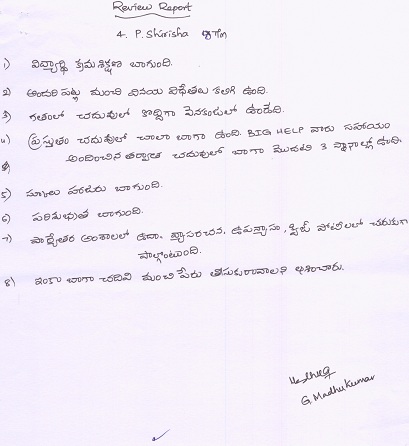 Review Report
4. P. Shirisha
1) విద్యార్థి క్రమశిక్షణ బాగుంది.
2) అందరి పట్ల మంచి వినయ విధేతలు కలిగి ఉంది.
3) గతంలో చదువులో కొద్దిగా వెనకబడి ఉండేది.
4) ప్రస్తుతం చదువులో చాలా బాగా ఉంది. BIG HELP వారు సహాయం
అందించిన తర్వాత చదువులో బాగా మొదటి 3 స్థానాల్లో ఉంది.
5) స్కూలు హాజరు బాగుంది.
6) పరిశుభ్రత బాగుంది.
7) పాఠ్యేతర అంశాలలో ఉదా. వ్యాసరచన, ఉపన్యాసం, క్విజ్ పోటీలలో చురుకుగా
పాల్గొంటుంది.
8) ఇంకా బాగా చదివి మంచి పేరు తీసుకురావాలని ఆశించారు.
G. Madhu Kumar